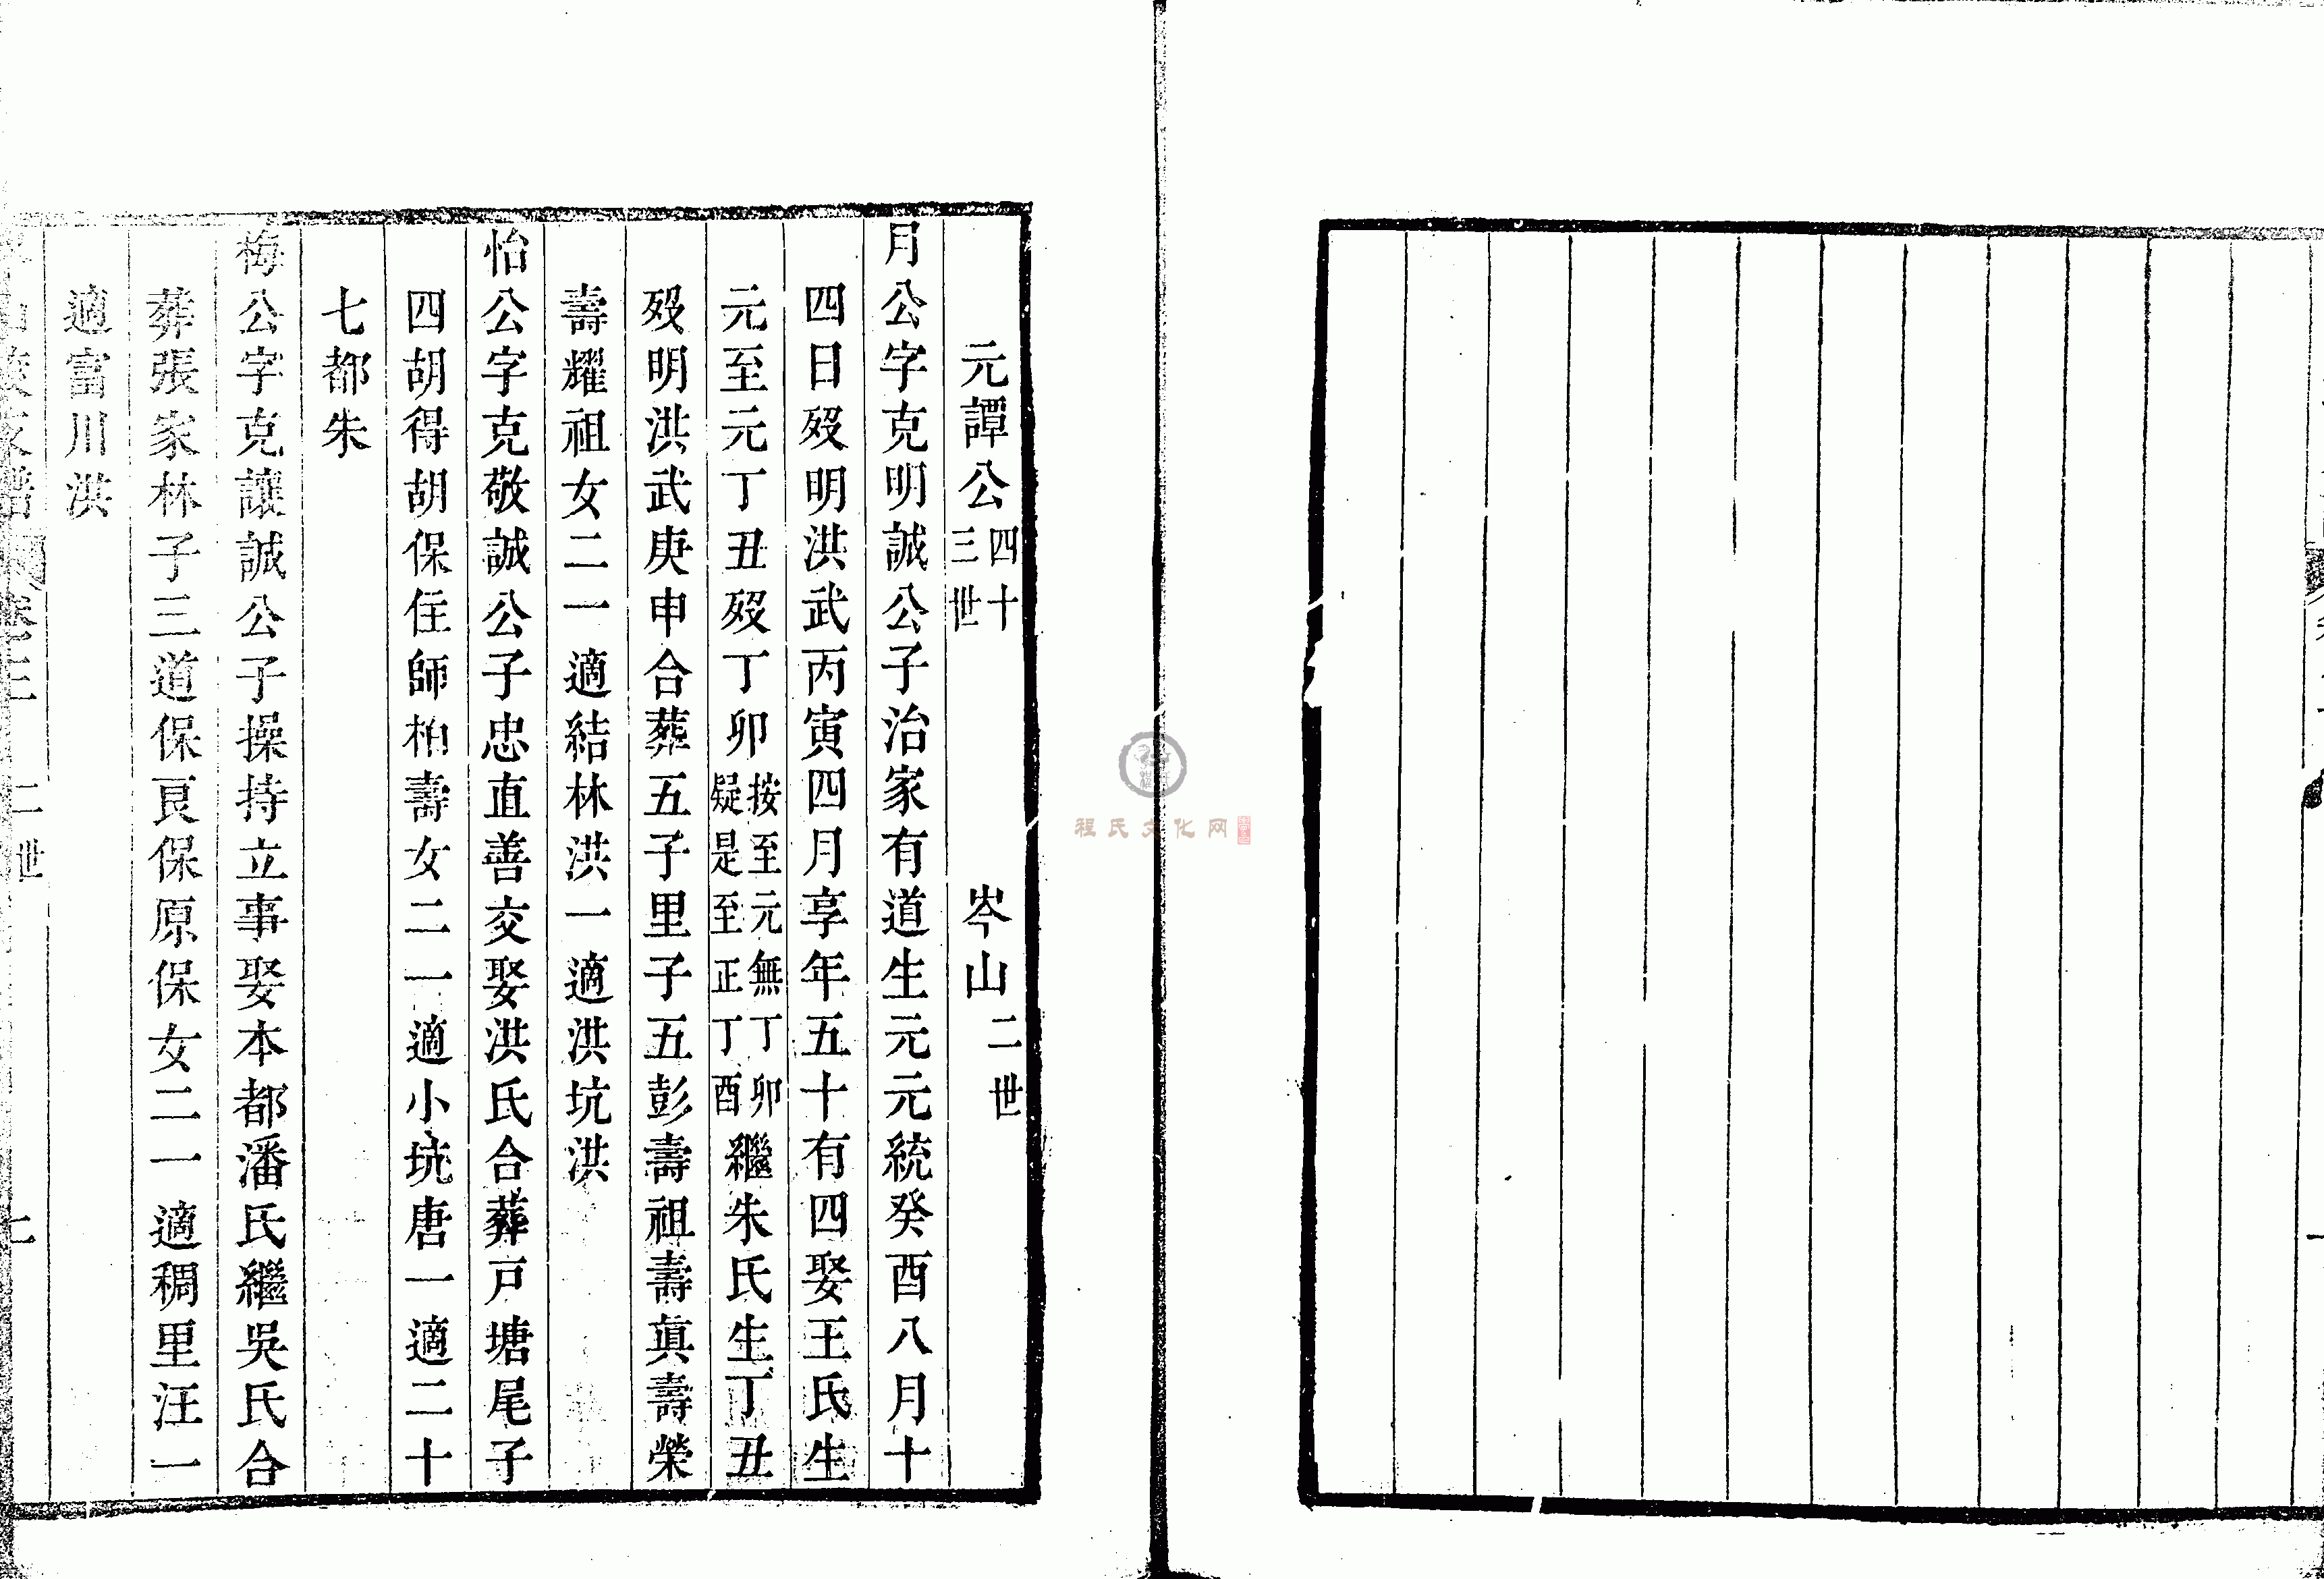 元譚公四十三世 岑山二世
月公字克明誠公子治家有道生元元統癸酉八月十
四日歿明洪武丙寅四月享年五十有四娶王氏生
元至元丁丑歿丁卯按至元無丁卯疑是至正丁酉繼朱氏生丁丑
歿明洪武庚申合葬五子里子五彭壽祖壽眞壽榮
壽耀祖女二一適結林洪一適洪坑洪
怡公字克敬誠公子忠直善交娶洪氏合葬戸塘尾子
四胡得胡保住師柏壽女二一適小坑唐一適二十
七都朱
梅公字克讓誠公子操持立事娶本都潘氏繼吳氏合
葬張家林子三道保艮保原保女二一適稠里汪一
適富川洪
山 支譜 卷三 二世 七
程氏文化网